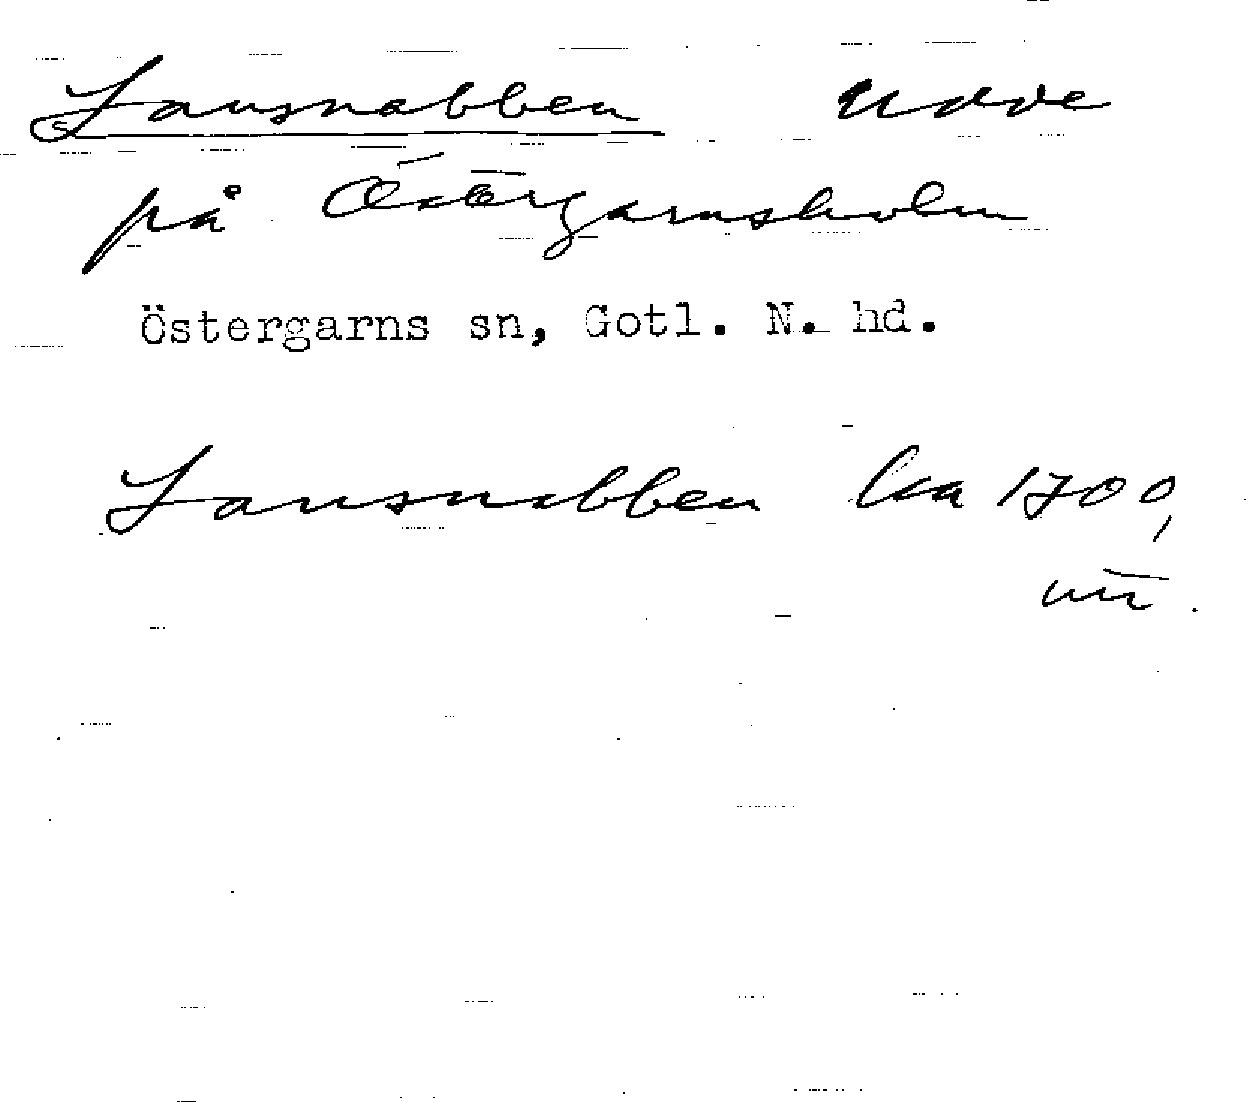 Lausnabben udde
på Östergarnsholm
Östergarns sn, Gotl. N. hd.
Lausnabben lka 1700,